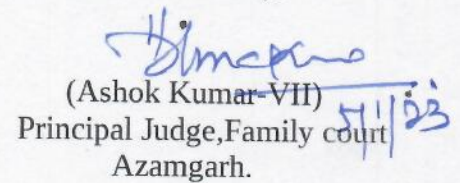 (Ashok Kumar-VII)
Principal Judge,Family court
5/1/23
Azamgarh.